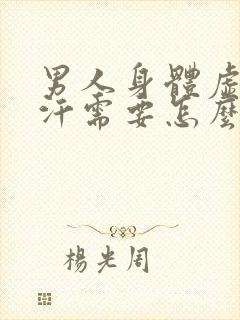 男人身體虛
汗需要怎麼
楊光周